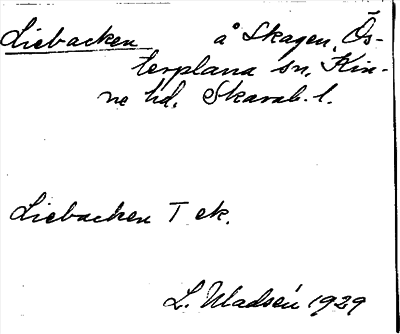 Liebacken å Skagen, Ös-
terplana sn, Kin-
ne hd. Skarab. l.
Liebacken T ek.
L. Uladsén 1929